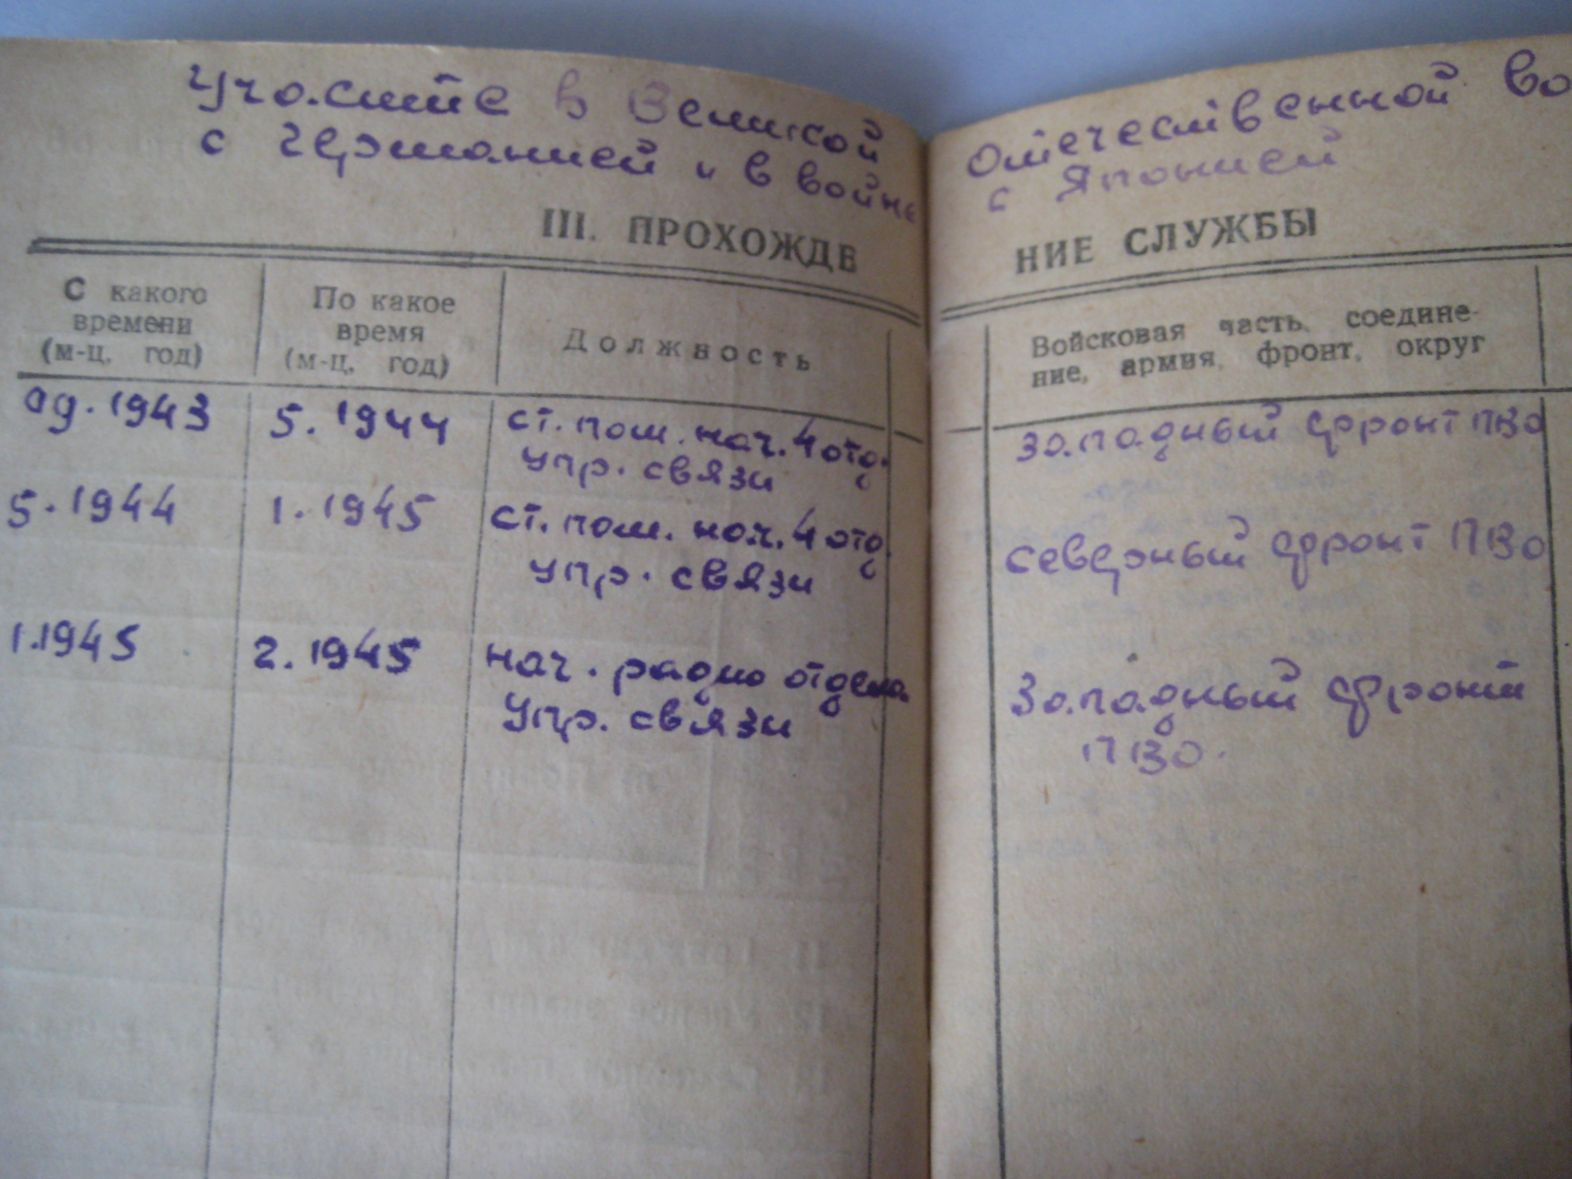 Участие в Великой Отечественной во
с Германией и в войне с Японией
III. ПРОХОЖДЕНИЕ СЛУЖБЫ
С какого времени (м-ц, год)
По какое время (м-ц, год)
Должность
Войсковая часть, соединение, армия, фронт, округ
09.1943 5.1944 ст. пом. нач. 4 отд. Западный фронт ПВО
упр. связи
5.1944 1.1945 ст. пом. нач. 4 отд. Северный фронт ПВО
упр. связи
1.1945 2.1945 нач. радио отдела Западный фронт
упр. связи ПВО.